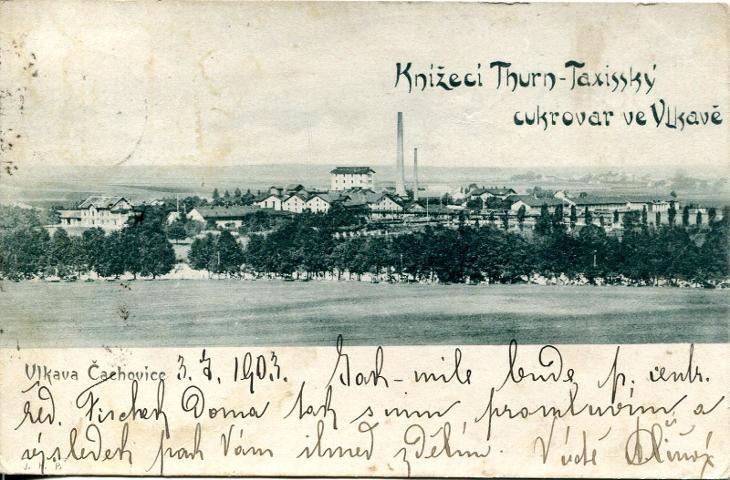 Knížecí Thurn-Taxisský
cukrovar ve Vlkavě
Vlkava Čachovice 3. 7. 1903. Jak-mile bude p. centr.
řed. Fischek Doma tak s ním promluvím a
výsledek pak Vám ihned zdělím. V úctě
J. K. P.